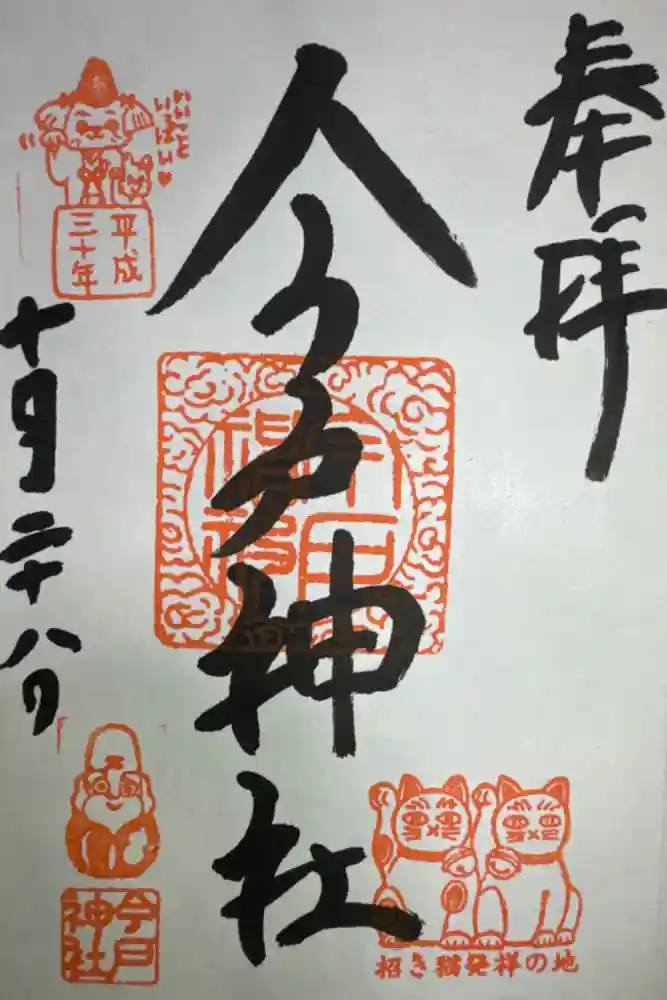 奉拝
今戸神社
いいこと
いっぱい♥
平成
三十年
十月二十八日
今戸
神社
招き猫発祥の地